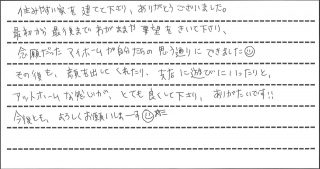 住みやすい家を建てて下さり、ありがとうございました。
最初から最後までわがままや要望をきいて下さり、
念願だったマイホームが自分たちの思う通りにできました
その後も、顔を出してくれたり、支店に遊びにいったりと、
アットホームな感じが、とても良くして下さり、ありがたいです!!
今後とも、よろしくお願いしまーす